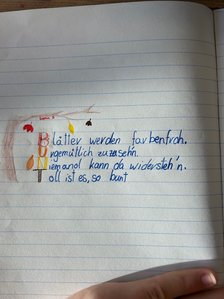 Blätter werden farbenfroh.
Urgemütlich zuzuseh'n.
Niemand kann da widersteh'n.
Toll ist es, so bunt